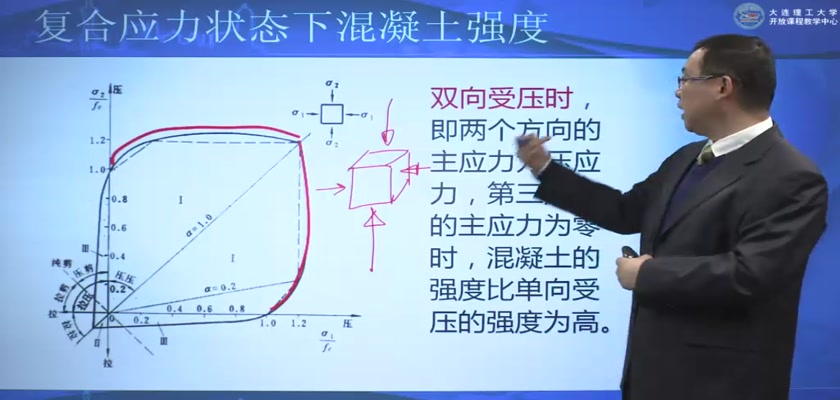 复合应力状态下混凝土强度
大连理工大学
开放课程教学中心
双向受压时，
即两个方向的
主应力为压应
力，第三
的主应力为零
时，混凝土的
强度比单向受
压的强度为高。
σ₂
f_c
压
1.2
1.0
0.8
0.6
0.4
0.2
0
0.2
0.4
0.6
0.8
1.0
1.2
压
σ₁
f_c
σ₂
σ₁
σ₁
σ₂
I
α=1.0
I
α=0.2
III
纯剪
压剪
压压
拉剪
拉压
拉
拉拉
II
III
拉